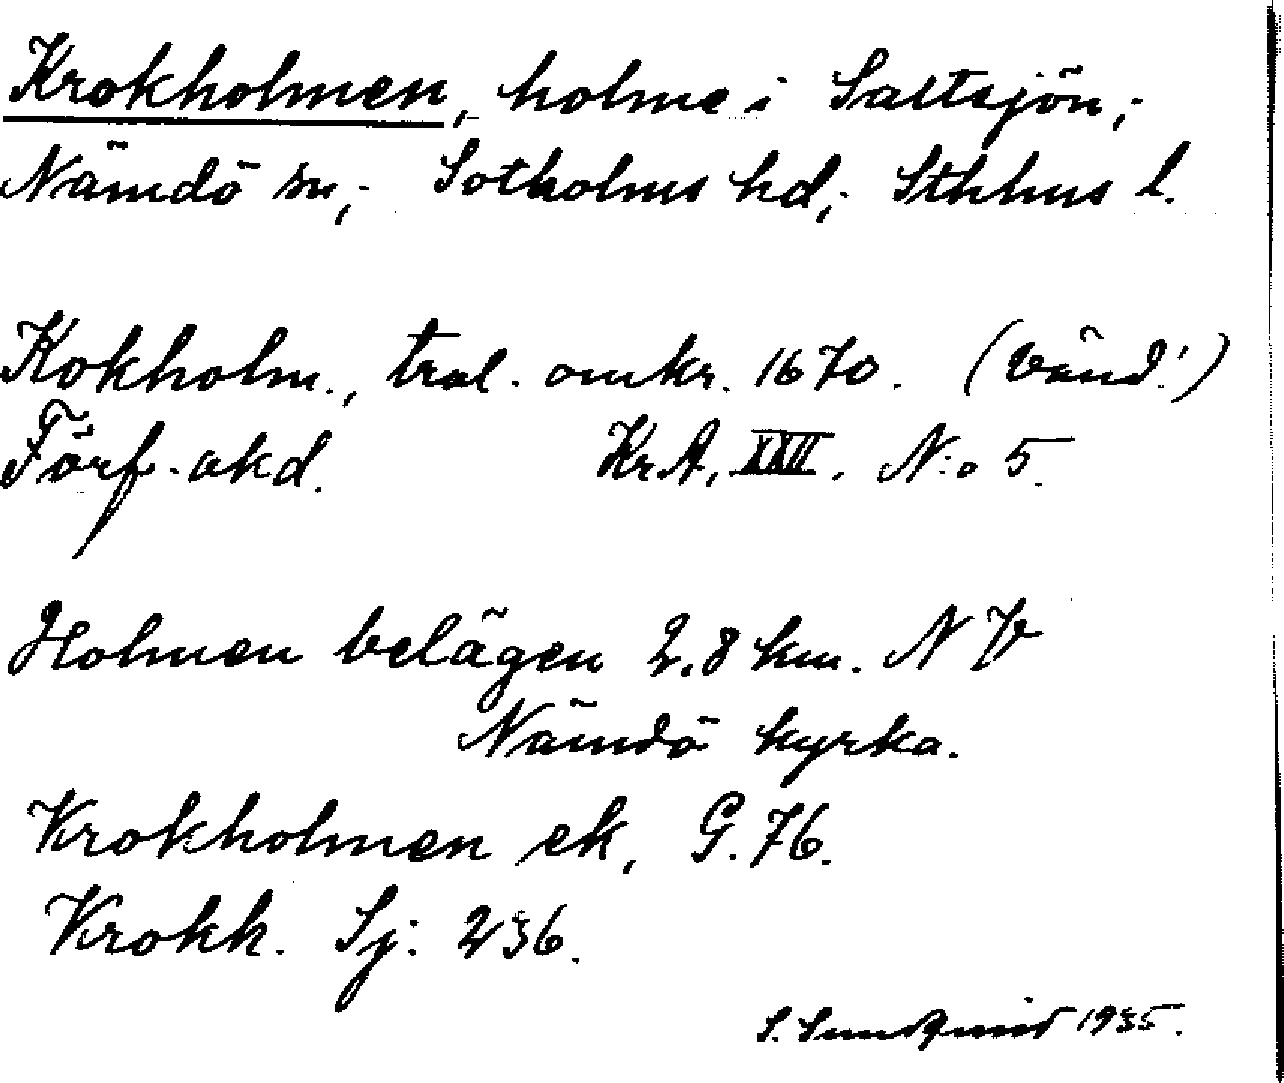 Krokholmen, holme i Saltsjön,
Nämdö sn, Sotholms hd, Sthlms l.
Kokholm., tral. omkr. 1670. (Vänd!)
Förf. okd. Kr.A. XXII. N:o 5.
Holmen belägen 2.8 km. NV
Nämdö kyrka.
Krokholmen ek, G. 76.
Krokh. Sj. 236.
S. Sundqvist 1935.